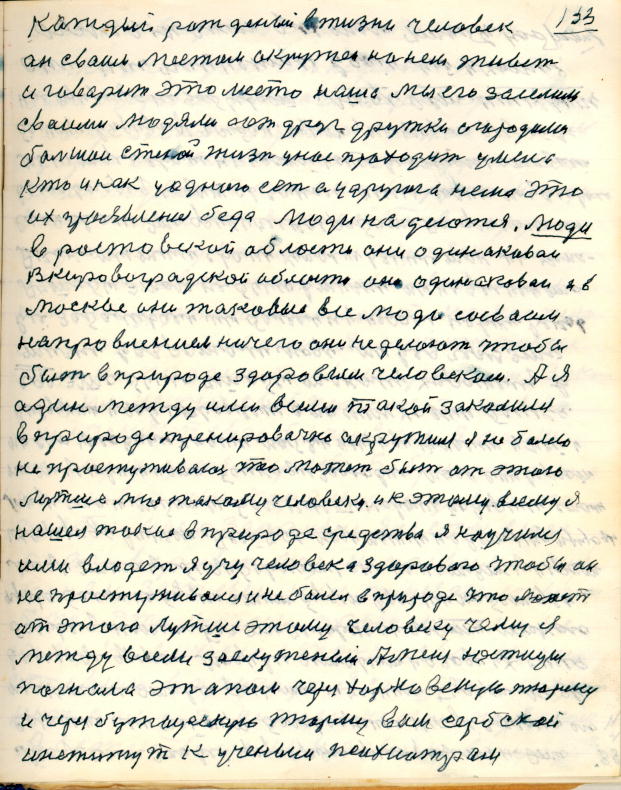 133
Каждый рожденый в жизни человек
он своим местом окружен на нем живет
и говарит это место наше мы его заселили
своими людями от друг дружки огородили
большой стеной жизн у нас проходит умен
кто и как у одного ест а у другога нема это
их проявлена беда люди надеются. люди
в ростовской области они одинаковаи
в кировоградской области они одинаковаи и в
москве они таковые все люди с своим
направлением ничего они не делают чтобы
быт в природе здоровым человеком. А я
один между ими всеми такой закалился
в природе тренировачно окружил я не болею
не простуживаюс что может быт от этого
лутше мне такому человеку. и к этому всему я
нашел такие в природе средства я научился
ими владет я учу человека здорового чтобы он
не простуживался и не болел в природе что может
от этого лутше этому человеку чем я
между всеми заслуженый А меня юстиция
погнала этапом через харковскую тюрму
и через бутырскую тюрму в им сербской
институт к ученым психиатрам